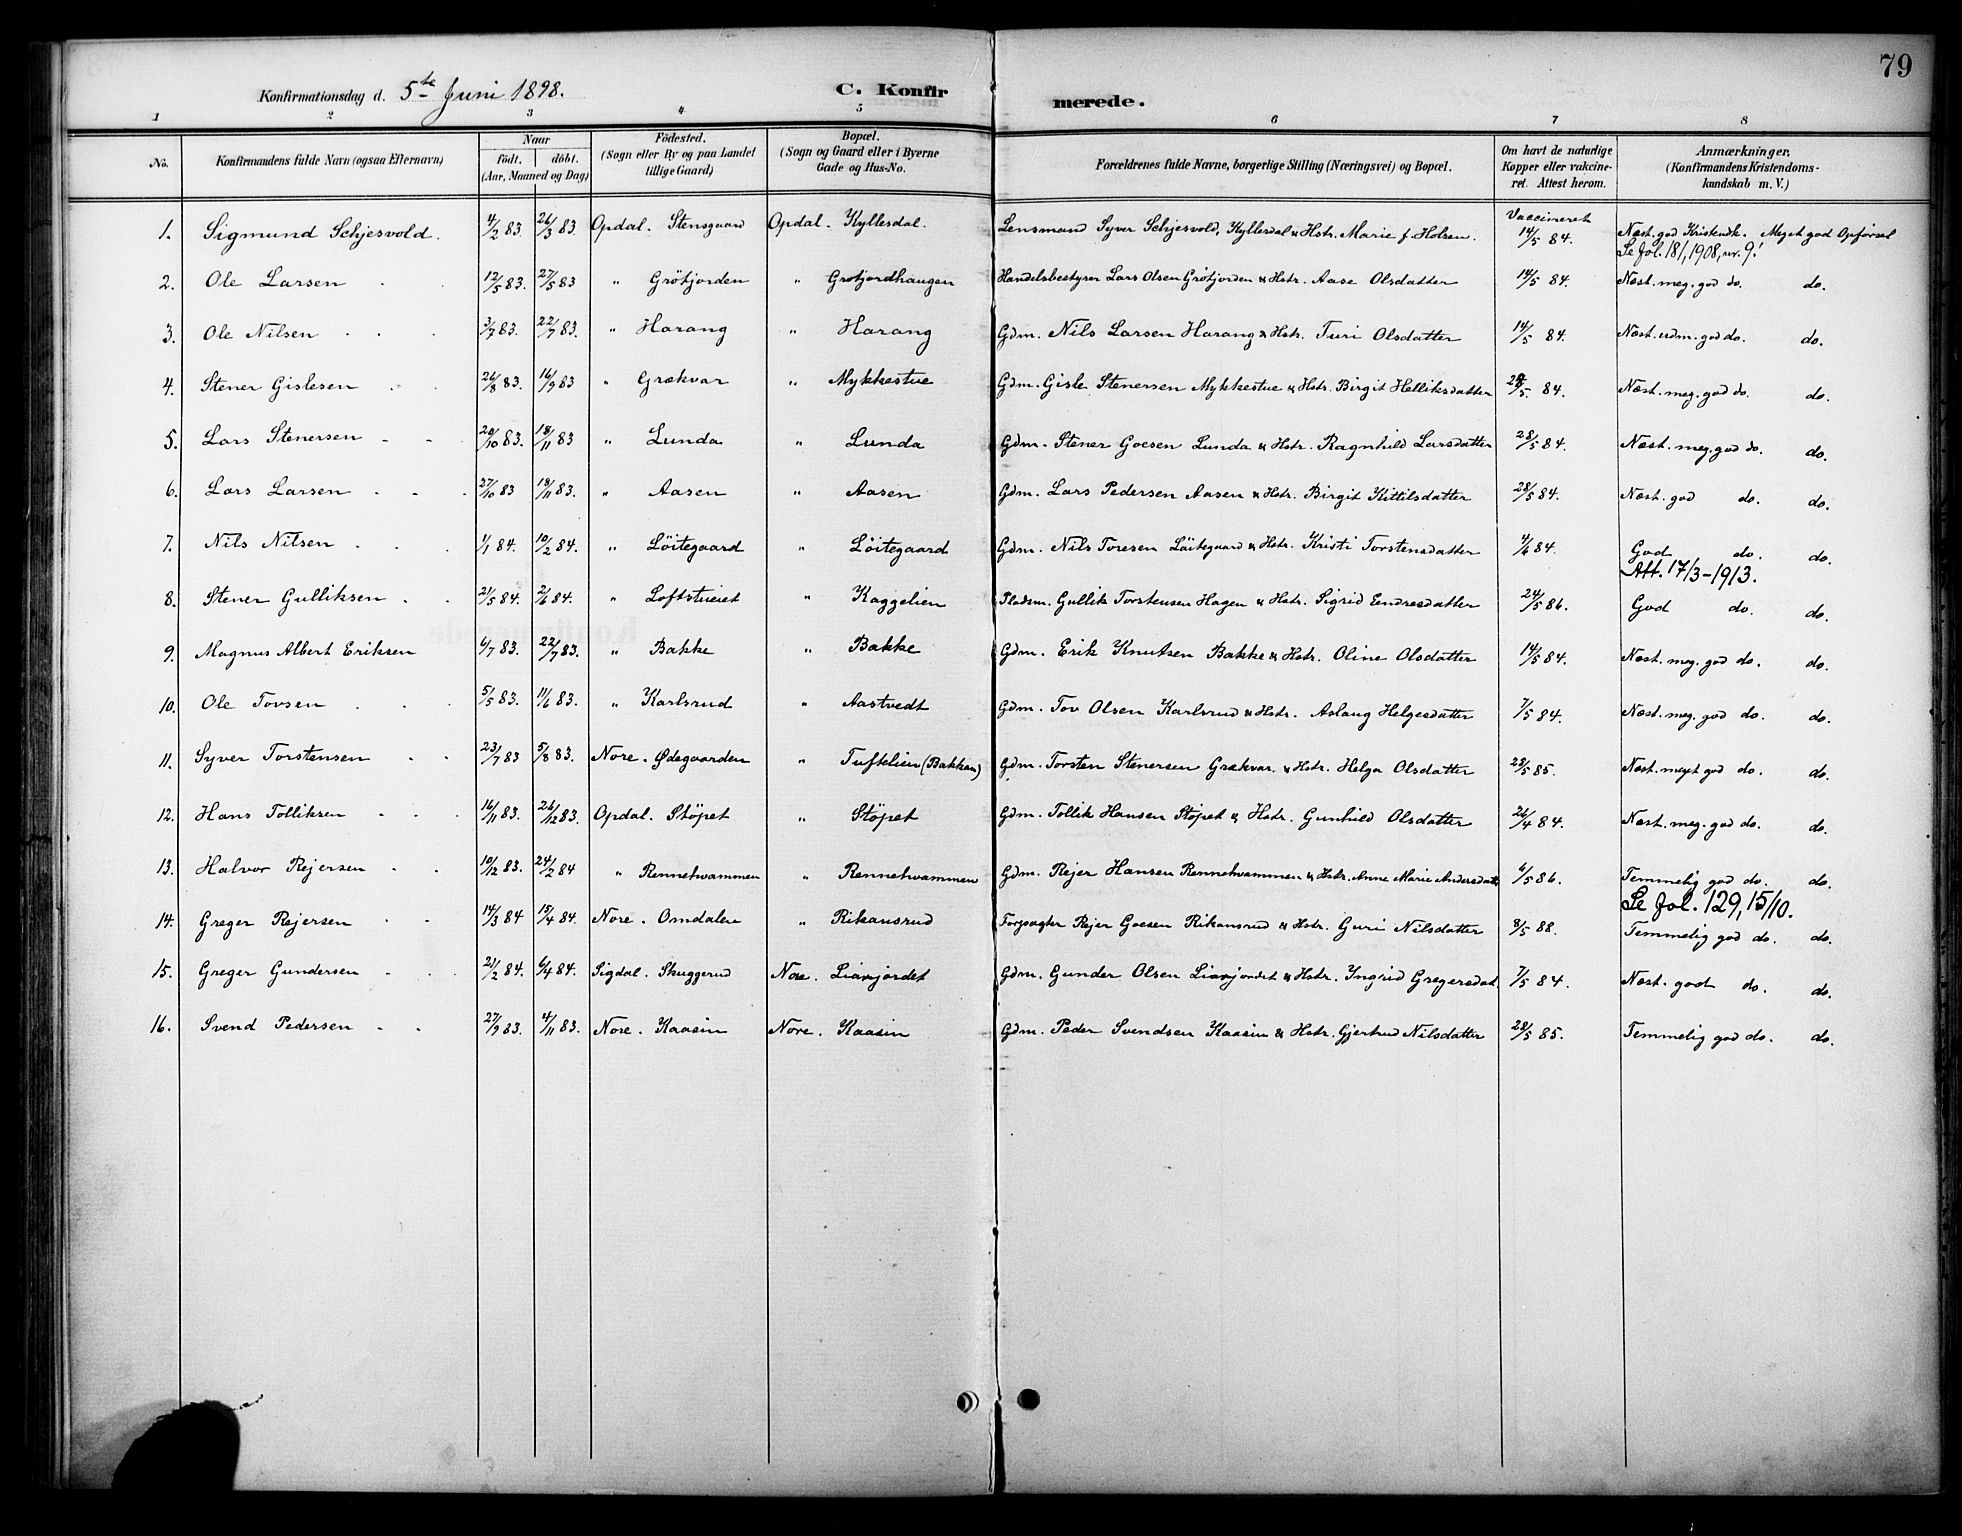 79
Konfirmationsdag d. 5te Juni 1898. C. Konfirmerede.
1 2 3 4 5 6 7 8
No. Konfirmandens fulde Navn (ogsaa Efternavn) Naar født. døbt. (Aar, Maaned og Dag) Fødested. (Sogn eller By og paa Landet tillige Gaard) Bopæl. (Sogn og Gaard eller i Byerne Gade og Hus-No. Forældrenes fulde Navne, borgerlige Stilling (Næringsvei) og Bopæl. Om havt de naturlige Kopper eller vakcineret. Attest herom. Anmærkninger, (Konfirmandens Kristendomskundskab m. V.)
1. Sigmund Schjesvold. 4/2 83. 26/3 83 Opdal. Stensgaard Opdal. Kyllesdal. Lensmand Syver Schjesvold, Kyllesdal & Hstr. Marie f. Holsen. Vaccineret 14/5 84. Næst. god Kristendk. Meget god Opførsel
Se fol. 181, 1908, nr. 9!
2. Ole Larsen 12/5 83. 27/5 83 " Gröfjorden " Grofjordhaugen Handelsbestyrer Lars Olsen Gröfjorden & Hstr. Aase Olsdatter 14/5 84. Næst. meg. god do. do.
3. Ole Nilsen 3/7 83. 22/7 83 " Harang " Harang Gdm. Nils Larsen Harang & Hstr. Turi Olsdatter 14/5 84. Næst. udm. god do. do.
4. Stener Gislesen 26/8 83. 16/9 83 " Grækvar " Mykkestue Gdm. Gisle Stenersen Mykkestue & Hstr. Birgit Helliksdatter 28/5 84. Næst. meg. god do. do.
5. Lars Stenersen 20/10 83. 18/11 83 " Lunda " Lunda Gdm. Stener Goesen Lunda & Hstr. Ragnhild Larsdatter 28/5 84. Næst. meg. god do. do.
6. Lars Larsen 27/10 83 18/11 83. " Aasen " Aasen Gdm. Lars Pedersen Aasen & Hstr. Birgit Kittilsdatter 28/5 84. Næst. god do. do.
7. Nils Nilsen 1/1 84. 10/2 84. " Löitegaard " Löitegaard Gdm. Nils Toresen Löitegaard & Hstr. Kristi Torstensdatter 4/6 84. God do. do.
Att. 17/3-1913.
8. Stener Gulliksen 21/5 84. 2/6 84. " Loftstueiet " Kaggelien Pladsm. Gullik Torstensen Hagen & Hstr. Sigrid Endresdatter 24/5 86. God do. do.
9. Magnus Albert Eriksen 6/7 83. 22/7 83. " Bakke " Bakke Gdm. Erik Knutsen Bakke & Hstr. Oline Olsdatter 14/5 84. Næst. meg. god do. do.
10. Ole Tovsen 5/5 83. 11/6 83. " Karlsrud " Aastvedt Gdm. Tov Olsen Karlsrud & Hstr. Aslaug Helgesdatter 7/5 84. Næst. meg. god do. do.
11. Syver Torstensen 23/7 83 5/8 83. Nore. Ødegaarden " Tuftelien (Bakken) Gdm. Torsten Stenersen Grækvar. & Hstr. Helga Olsdatter 28/5 85. Næst. meget god do. do.
12. Hans Tolliksen 16/11 83. 26/12 83. Opdal. Stöpet " Stöpet Gdm. Tollik Hansen Stöpet & Hstr. Gunhild Olsdatter 26/4 84. Næst. meg. god do. do.
13. Halvor Rejersen 10/12 83. 24/2 84 " Rennehvammen " Rennehvammen Gdm. Rejer Hansen Rennehvammen & Hstr. Anne Marie Andersdatt 6/5 86. Temmelig god do. do.
Se fol. 129, 15/10.
14. Greger Rejersen 14/3 84 15/4 84. Nore. Omdalen " Rikansrud Forpagter Rejer Goesen Rikansrud & Hstr. Guri Nilsdatter 8/5 88. Temmelig god do. do.
15. Greger Gundersen 21/2 84. 6/4 84. Sigdal. Skuggerud Nore. Liavjordet Gdm. Gunder Olsen Liavjordet & Hstr. Yngrid Gregersdat 7/5 84. Næst. godt do. do.
16. Svend Pedersen 27/9 83. 4/11 83. Nore. Kaasin Nore. Kaasin Gdm. Peder Svendsen Kaasin & Hstr. Gjertrud Nilsdatter 28/5 85. Temmelig god do. do.